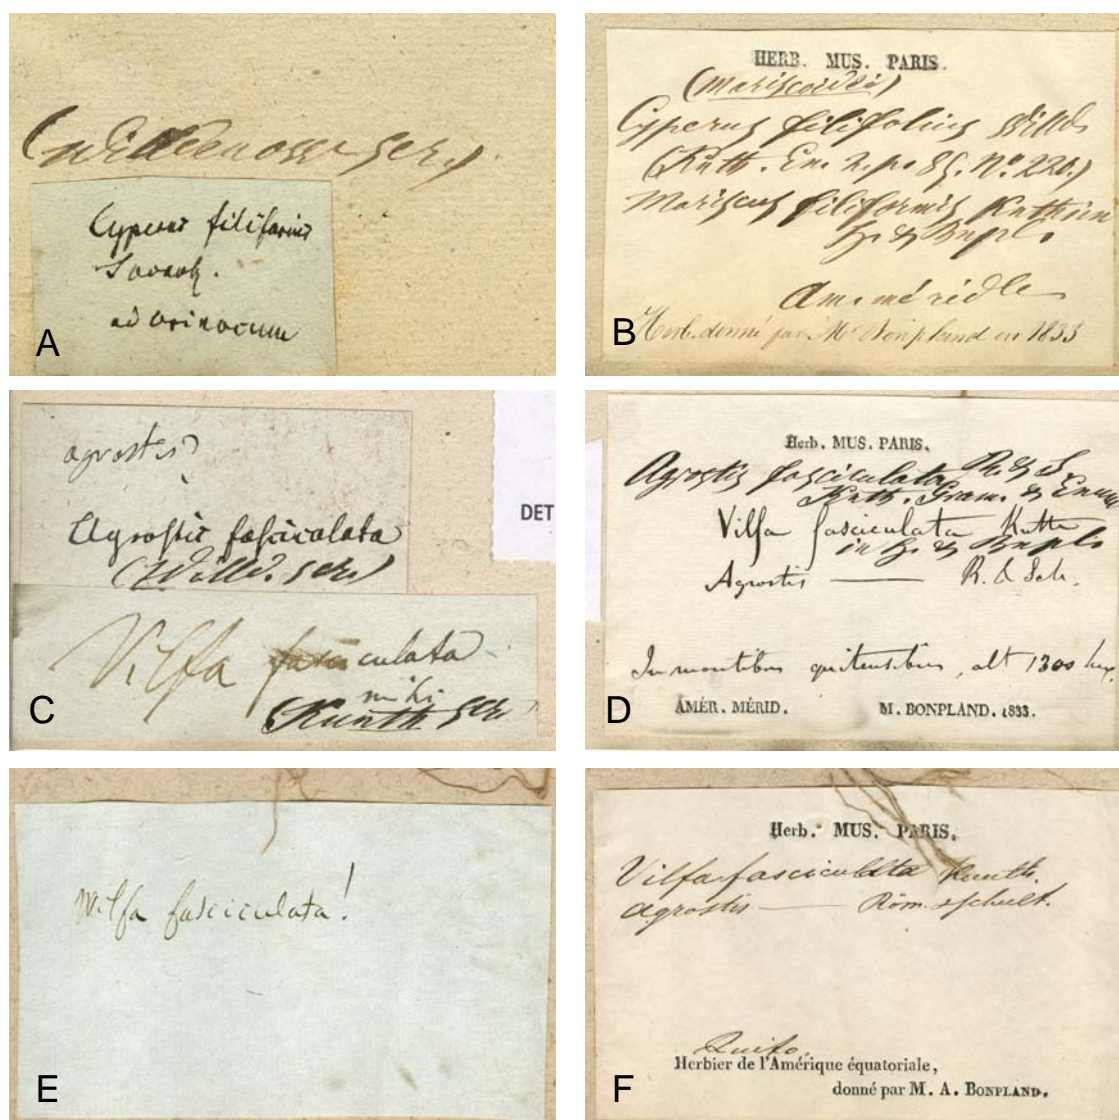 (Willdenow scr.)
Cyperus filiformis
Swartz.
ad Orinocum
A
HERB. MUS. PARIS.
(Mariscoidei)
Cyperus filifolius Willd.
(Knth. En. 2. po 85. No. 220.)
Mariscus filiformis Knth in
h. & Bnpl.
Am. méridle
Herb. donné par Mr Bonpland en 1833
B
agrostis
Agrostis fasciculata
(Willd. scr.)
Vilfa fasciculata
mihi
(Kunth scr.
DET
C
Herb. MUS. PARIS.
Agrostis fasciculata R. & S.
Knth. Gram. & Enum
Vilfa fasciculata Knth
in h. & Bnpl.
Agrostis —— R. & Sch.
In montibus quitensibus, alt 1300 hex.
AMÉR. MÉRID. M. BONPLAND. 1833.
D
Wilfa fasciculata!
E
Herb. MUS. PARIS.
Vilfa fasciculata Kunth.
Agrostis —— Röm. & Schult.
Quito
Herbier de l'Amérique équatoriale,
donné par M. A. BONPLAND.
F